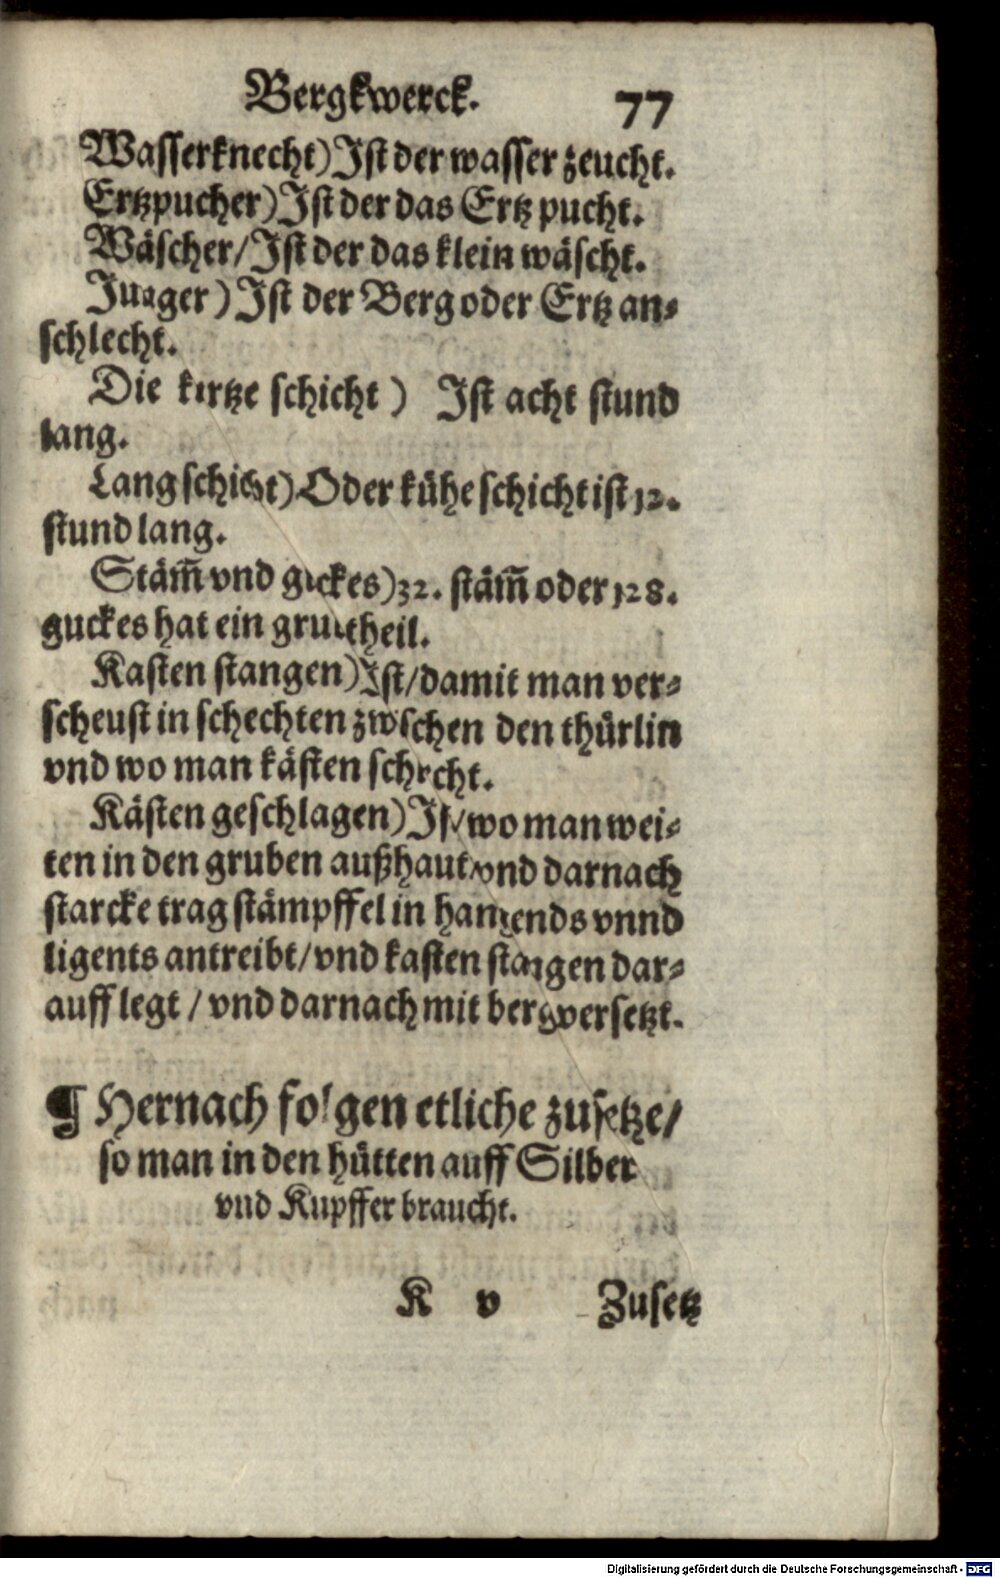 Bergkwerck. 77
Wasserknecht) Ist der wasser zeucht.
Ertzpucher) Ist der das Ertz pucht.
Wäscher/ Ist der das klein wäscht.
Junger) Ist der Berg oder Ertz an-
schlecht.
Die kurtze schicht) Ist acht stund
lang.
Lang schicht) Oder kühe schicht ist 12.
stund lang.
Stäm̄ vnd guckes) 32. stäm̄ oder 128.
guckes hat ein gruntheil.
Kasten stangen) Ist/ damit man ver-
scheust in schechten zwischen den thürlin
vnd wo man kästen schecht.
Kästen geschlagen) Ist/ wo man wei-
ten in den gruben außhaut/ vnd darnach
starcke trag stämpffel in hangends vnnd
ligents antreibt/ vnd kasten stangen dar-
auff legt / vnd darnach mit berg versetzt.
¶ Hernach folgen etliche zusetze/
so man in den hütten auff Silber
vnd Kupffer braucht.
K v Zusetz
Digitalisierung gefördert durch die Deutsche Forschungsgemeinschaft - DFG